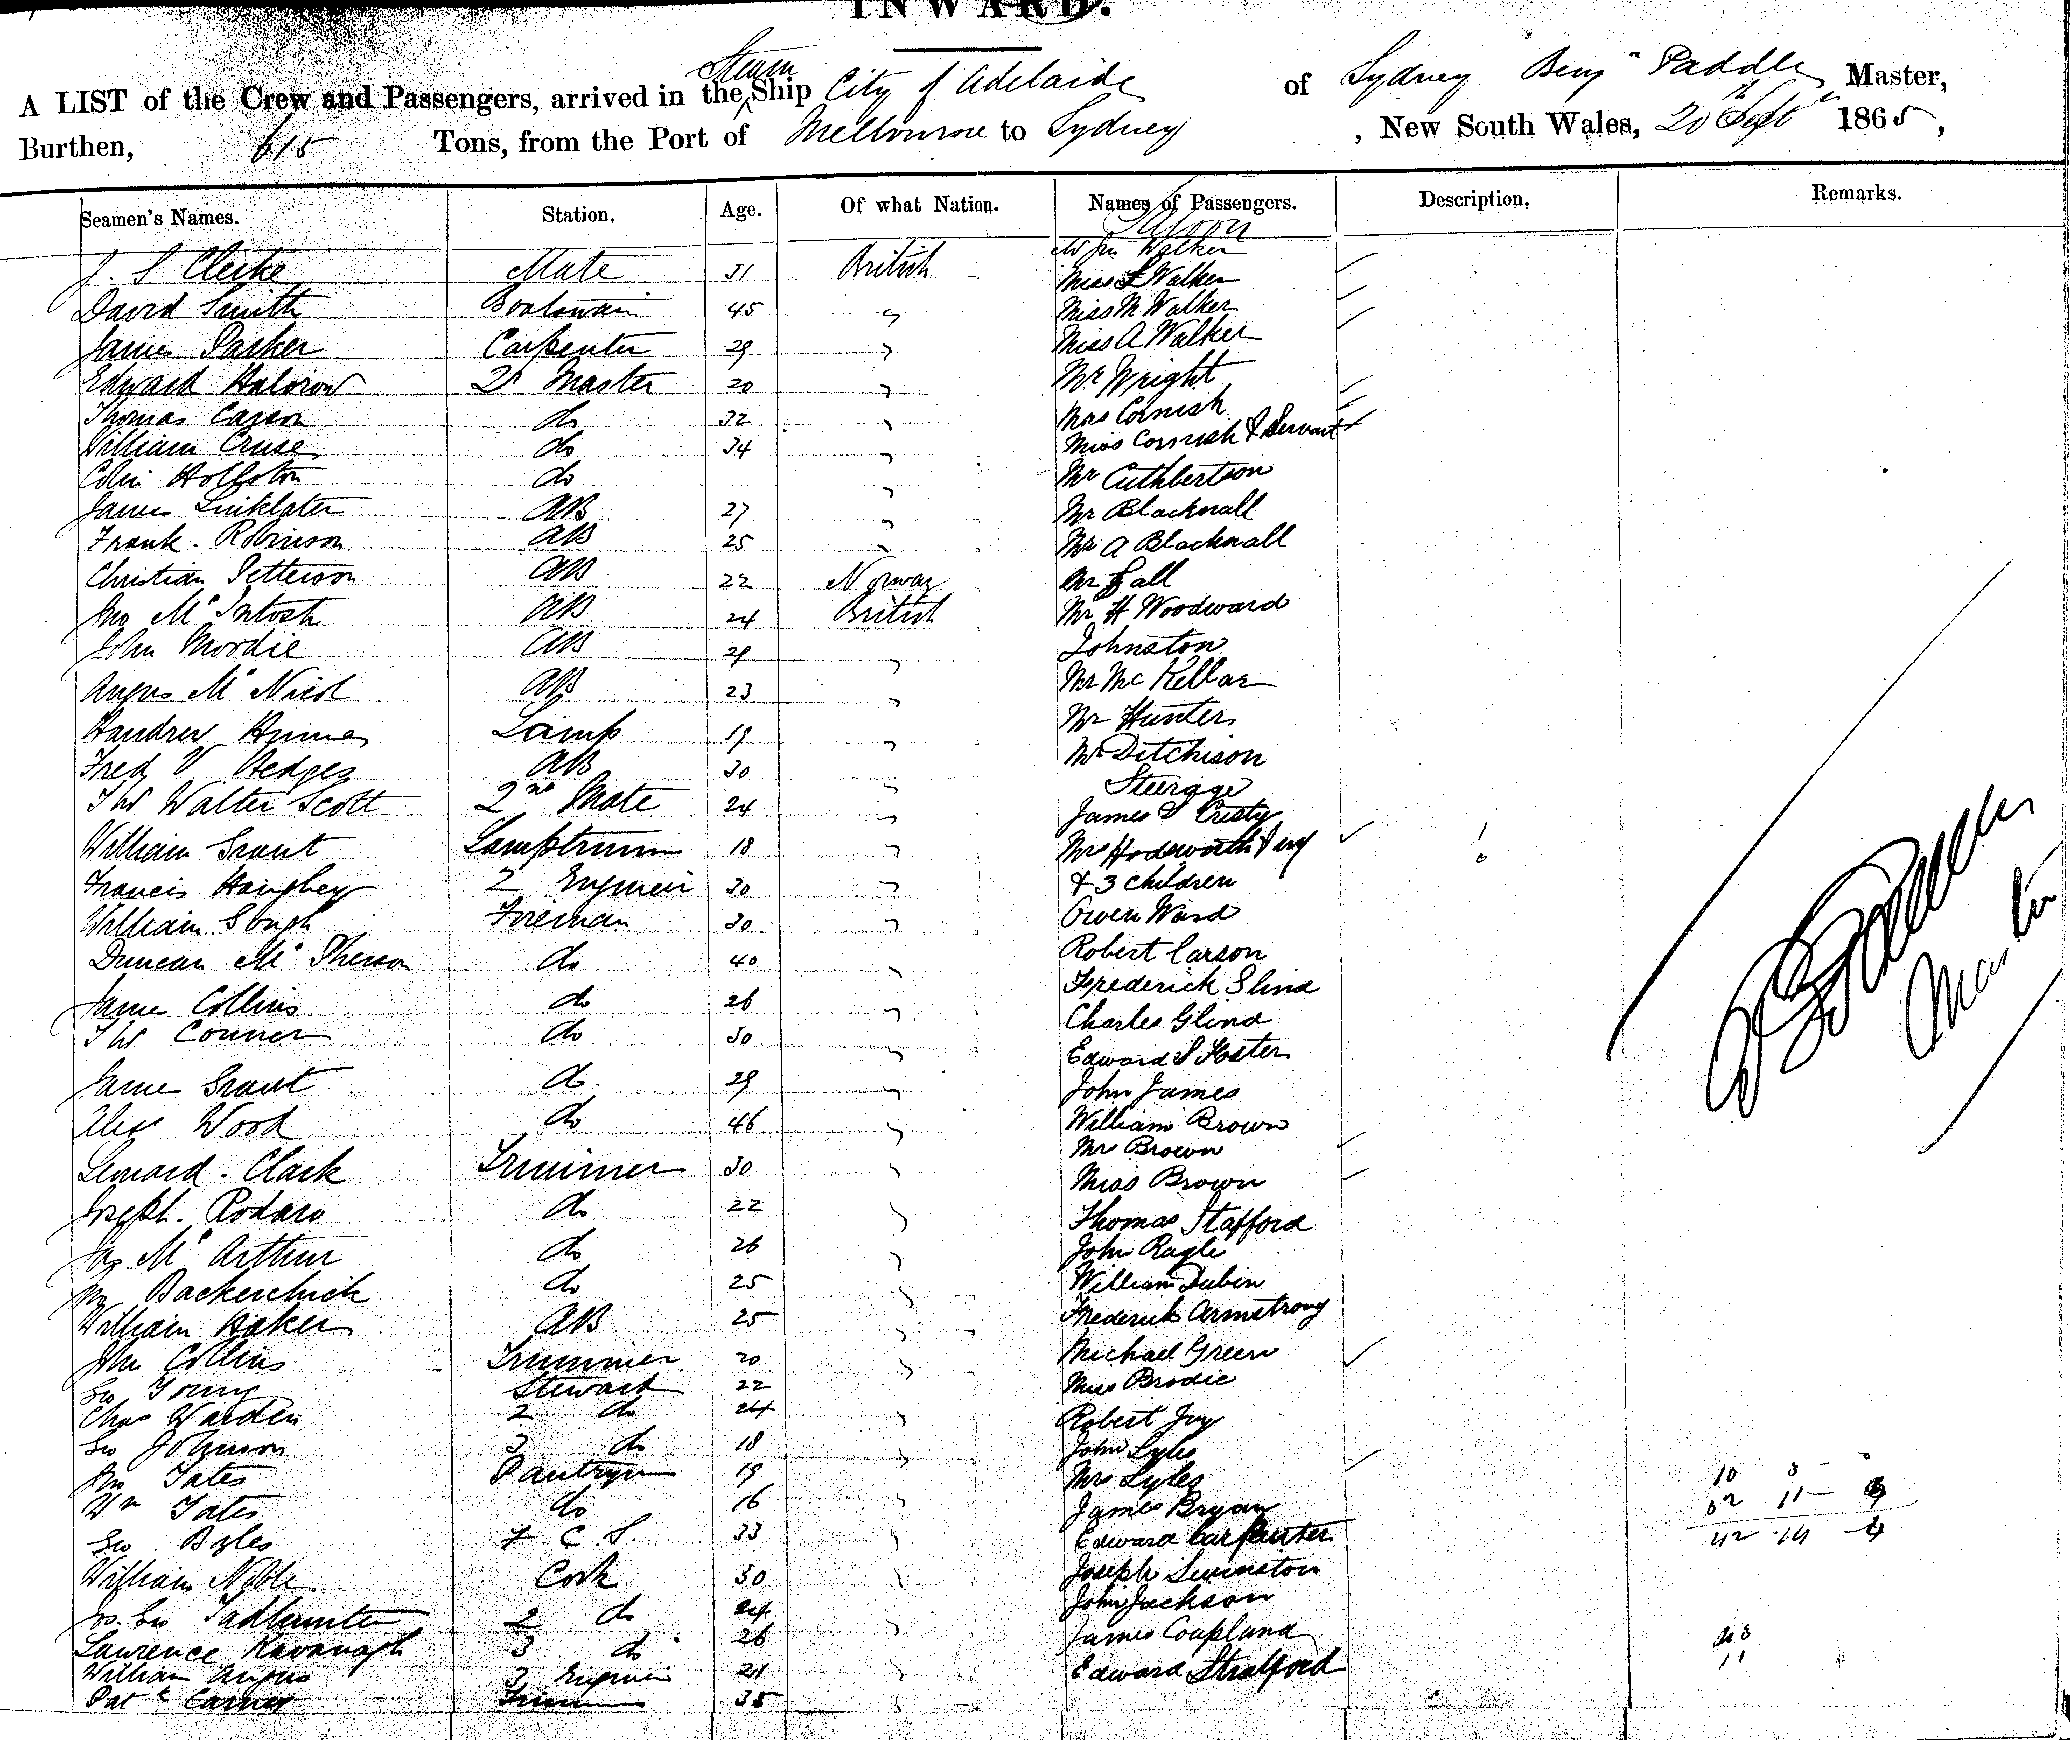 INWARD.
A LIST of the Crew and Passengers, arrived in the Steam Ship City of Adelaide of Sydney Benj Paddle Master,
Burthen, 615 Tons, from the Port of Melbourne to Sydney, New South Wales, 20th Sept 1865,
Seamen's Names. Station. Age. Of what Nation. Names of Passengers. Description. Remarks.
Saloon
J. S Clerke Mate 31 British Walker
Miss L Walker
David Smith Boatswain 45 " Miss M Walker
James Parker Carpenter 29 " Miss A Walker
Edward Halcrow Master 20 " Mr Wright
Thomas Carson do 32 " Mrs Cornish
William Cruse do 34 " Miss Cornish & Servant
Colin do " Mr Cuthbertson
James Linklater AB 27 " Mr Blacknall
Frank. Robinson AB 25 " Mr A Blacknall
Christian Petterson AB 22 Norway Mr Hall
Jno McIntosh AB 24 British Mr H Woodward
John Mordie AB 29 " Johnston
Angus McNicol AB 23 " Mr McKellar
Handrew Lamp 19 " Mr Hunter
Fred V Hedges AB 30 " Mr Ditchison
Steerage
Thos Walter Scott 2nd Mate 24 " James Cristy
William Grant Lamptrimm 18 " Mrs Hodsworth &
Francis Haughey 2 Engineir 30 " & 3 children
William Gough Fireman 30 " Owen Ward
Duncan McPherson do 40 " Robert Carson
Frederick Slind
Jame Collins do 26 " Charles Glind
Thos Conner do 30 " Edward S Foster
Jame Grant do 29 " John James
Alex Wood do 46 " William Brown
Mr Brown
Lenard. Clark Trimmer 30 " Miss Brown
Joseph. Rodaro do 22 " Thomas Stafford
Jas McArthur do 26 " John Ragle
Backerchick do 25 " William Dubin
William Baker AB 25 " Frederick Armstrong
John Collins Trimmer 20 " Michael Green
Geo Young Steward 22 Miss Brodie
Chas Warden 2 do 24 " Robert Joy
Geo Johnson 3 do 18 " John Lyle
Jno Yates Pantryn 19 Mrs Lyles 10 3
Wm Yates do 16 " James Bryan 32 11
Geo Byles F C S 33 " Edward Carpenter 42 14 4
William Noble Cook 30 " Joseph Levinston
2 do 24 " John Jackson
Lawrence Kavanagh 3 do 26 " James Coupland
William Angus 3 Engineir 24 " Edward Stratford
Patk Carney 35 "
Master